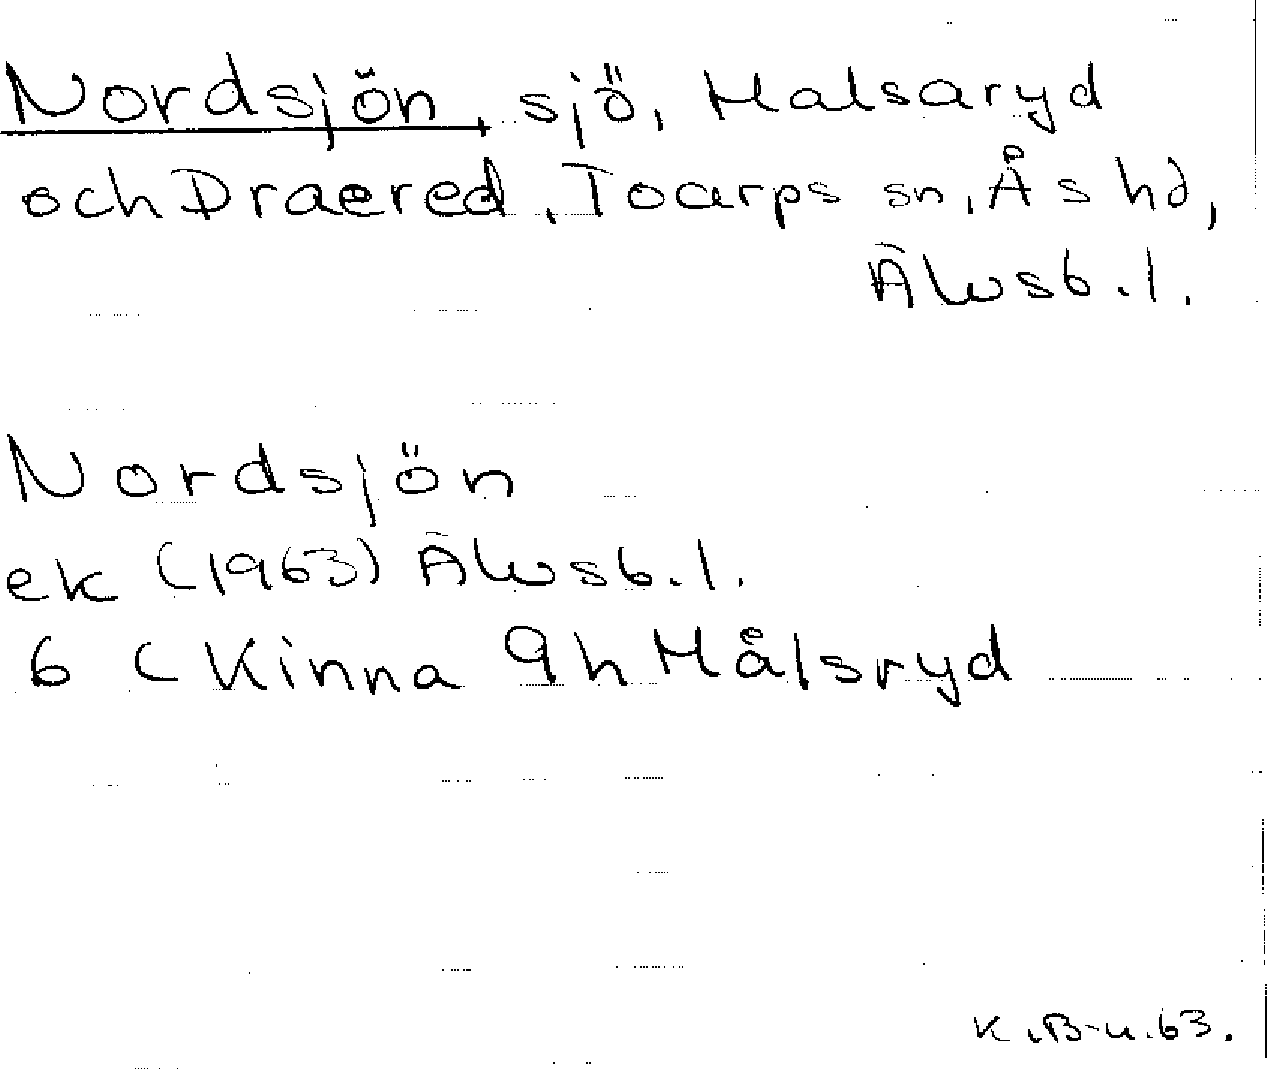 Nordsjön, sjö, Malsaryd
och Draered, Toarps sn, Ås hd,
Älvsb. l.
Nordsjön
ek (1963) Älvsb. l.
6 C Kinna 9h Målsryd
K. B-u. 63.